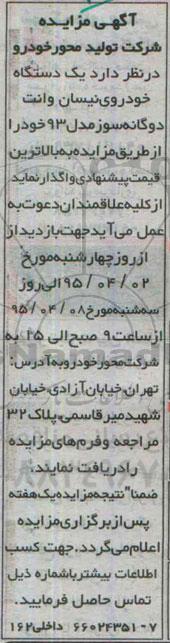 آگهی مزایده
شرکت تولید محور خودرو
در نظر دارد یک دستگاه
خودروی نیسان وانت
دوگانه سوز مدل ۹۳ خود را
از طریق مزایده به بالاترین
قیمت پیشنهادی واگذار نماید
از کلیه علاقمندان دعوت به
عمل می آید جهت بازدید از
از روز چهارشنبه مورخ
۹۵/۰۴/۰۲ الی روز
سه شنبه مورخ ۹۵/۰۴/۰۸
از ساعت ۹ صبح الی ۱۵ به
شرکت محور خودرو به آدرس:
تهران خیابان آزادی خیابان
شهید میرقاسمی پلاک ۳۲
مراجعه و فرم های مزایده
را دریافت نمایند.
ضمنا" نتیجه مزایده یک هفته
پس از برگزاری مزایده
اعلام می گردد. جهت کسب
اطلاعات بیشتر با شماره ذیل
تماس حاصل فرمایید.
۷-۶۶۰۲۴۳۵۱ داخلی ۱۶۲